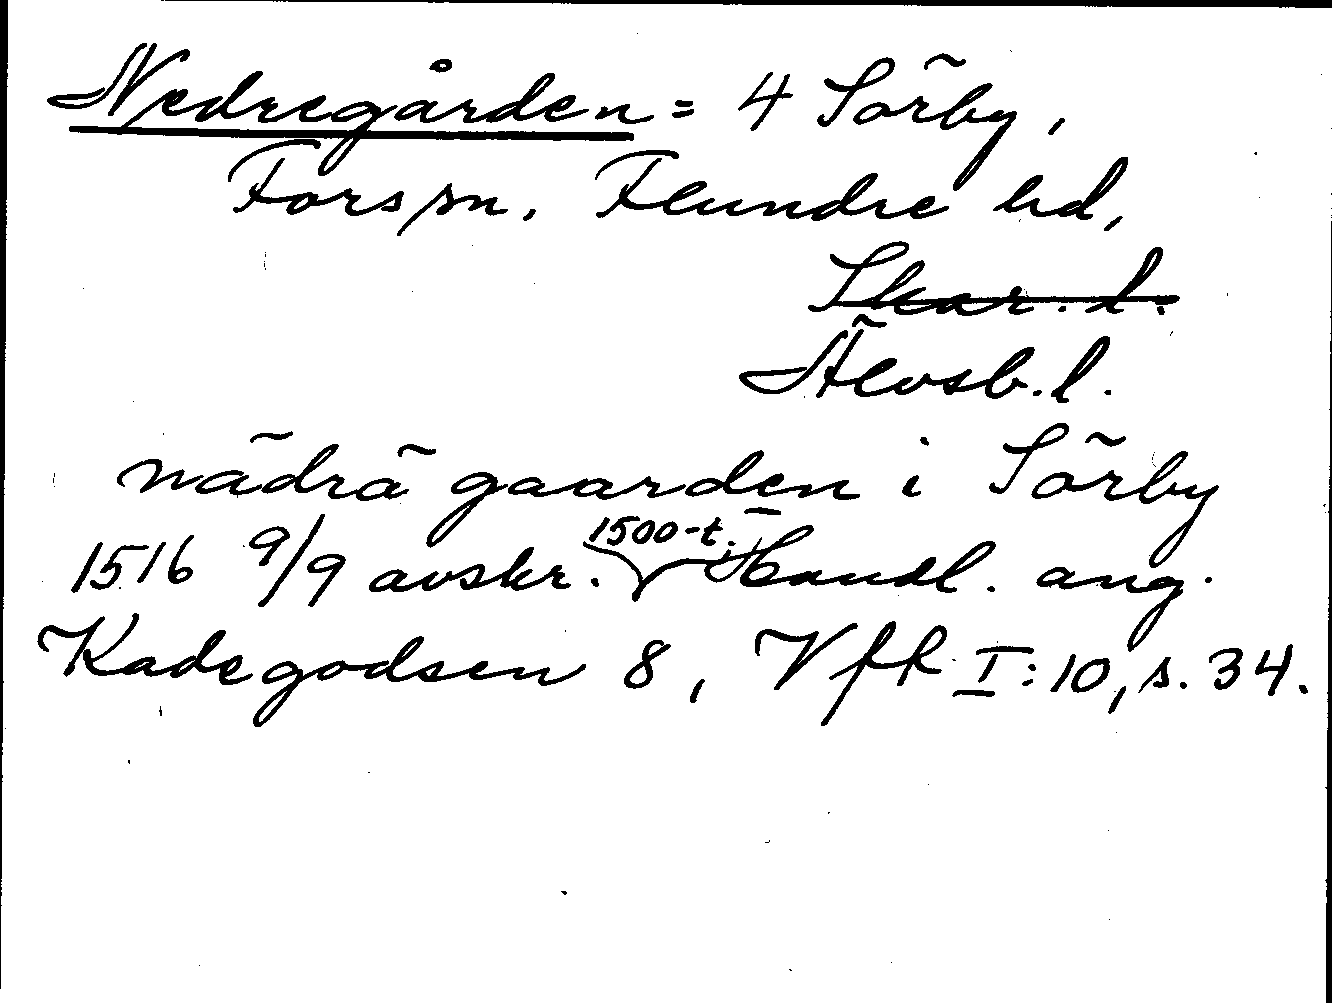 Nedregården = 4 Sörby,
Fors sn. Flundre hd,
Skar. l.
Älvsb. l.
nädrä gaarden i Sörby
1516 9/9 avskr. 1500-t. Handl. ang.
Kadegodsen 8, VfR I:10, s. 34.